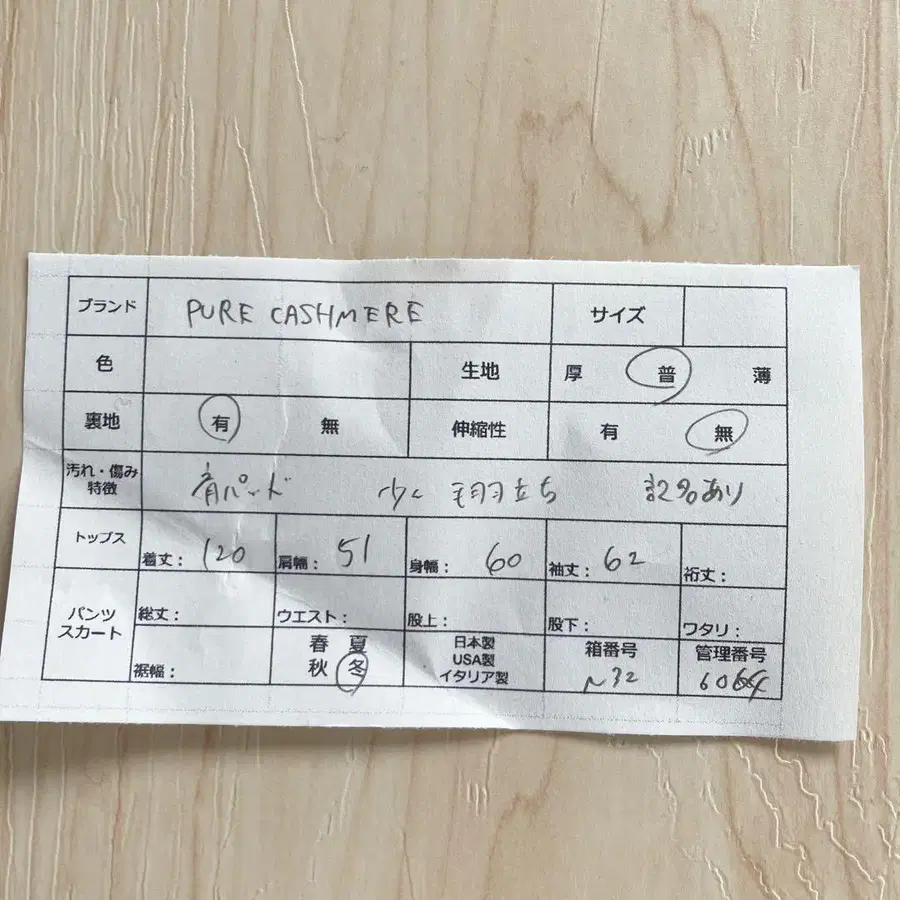 ブランド PURE CASHMERE サイズ
色 生地 厚 普 薄
裏地 有 無 伸縮性 有 無
汚れ・傷み
特徴 肩パッド 少し 毛羽立ち 記名あり
トップス 着丈: 120 肩幅: 51 身幅: 60 袖丈: 62 裄丈:
パンツ
スカート 総丈: ウエスト: 股上: 股下: ワタリ:
裾幅: 春 夏
秋 冬 日本製
USA製
イタリア製 箱番号
N32 管理番号